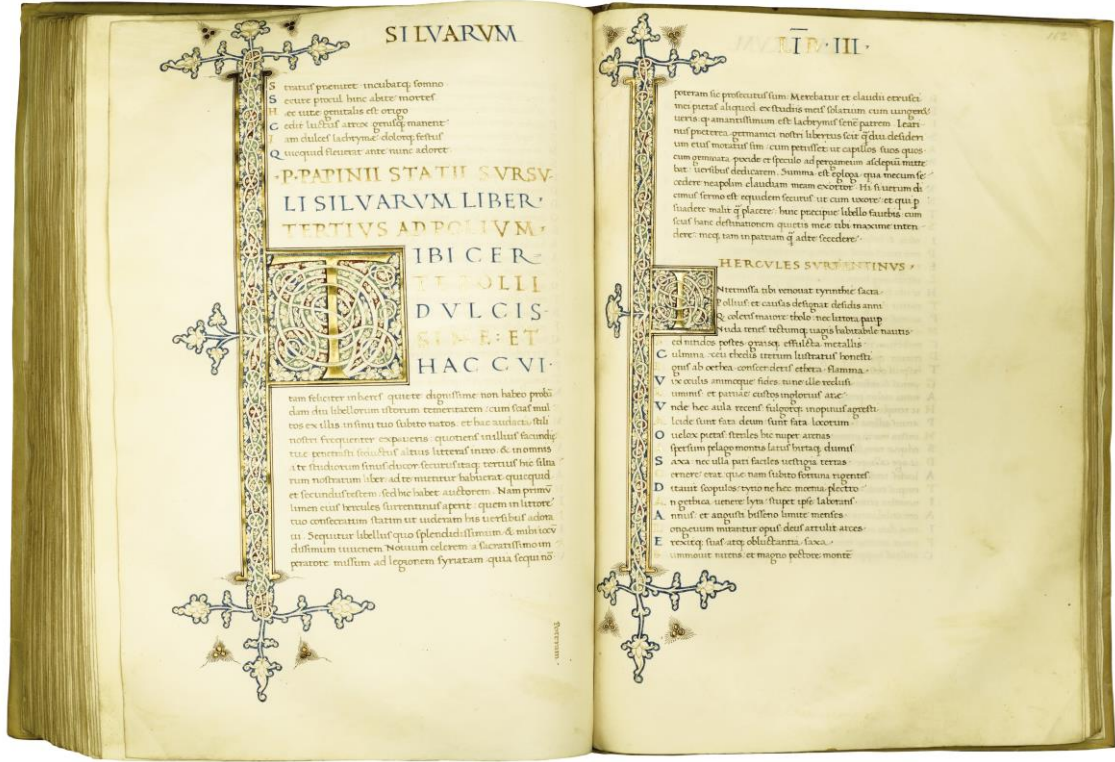 SILVARVM
S tratus premitet incubatq; somno
S ecure procul hinc abite mortes
H ec uite genitalis est origo
C edit luctus atrox genisq; manent
I am dulces lachryme dolorq; festus
Q uicquid fleuerat ante nunc adoret
·P·PAPINII STATII SVRSV·
LI SILVARVM LIBER·
TERTIVS AD POLIVM·
TIBI CER
TE POLLI
DVLCIS·
SIME: ET
HAC CVI·
tam feliciter inheres quiete dignissime non habeo probā
dam diu libellorum istorum temeritatem: cum scias mul
tos ex illis in sinu tuo subito natos: et hac audacia stili
nostri frequenter expaueris: quotiens in illius facundię
tue penetrasti seductus altius litteras intro: & in omnis
a te studiorum sinus ducor securus itaq; tertius hic silua
rum nostrarum liber ad te mittitur habuerat quicquid
et secundus testem. sed hic habet auctorem. Nam primū
limen eius hercules surrentinus aperit: quem in littore
tuo consecratum statim ut uideram his uersibus adora
ui. Sequitur libellus quo splendidissimum & mihi iocū
dissimum iuuenem Nouium celerem a sacratissimo im
peratore missum ad legionem syriatam quia sequi nō
LĪB·III·
162
poteram sic prosecutus sum. Merebatur et claudii etrusci
mei pietas aliquod ex studiis meis solatium cum lugeret
ueris q̄ amantissimum est lachrymis senē patrem. Leari
nus preterea germanici nostri libertus scit q̄ diu desideri
um eius moratus sim: cum petisset ut capillos suos quos
cum gemmata pixide et speculo ad pergameum asclepiū mitte
bat: uersibus dedicarem. Summa est egloga qua mecum se
cedere neapolim claudiam meam exortor. Hi si uerum di
cimus sermo est equidem securus ut cum uxore: et qui p
suadere malit q̄ placere: hinc precipue libello fauebis cum
scias hanc destinationem quietis mee tibi maxime inten
dere meq; tam in patriam q̄ ad te secedere·
HERCVLES SVRRENTINVS·
INtermissa tibi renouat tyrinthie sacra·
Pollius: et causas designat desidis anni
Q coleris maiore tholo: nec littora paup
Nuda tenes tectumq; uagis habitabile nautis·
S ed nitidos postes graisq; effulta metallis
C ulmina ceu thedis iterum lustratus honesti
I gnis ab oethea conscenderis ethera flamma·
V ix oculis animoque fides tune ille reclusi
L iminis et paruae custos inglorius arae·
V nde hec aula recens fulgorq; inopinus agresti
A lcide sunt fata deum sunt fata locorum
O uelox pietas steriles hic nuper arenas
A spersum pelago montis latus hirtaq; dumis
S axa nec ulla pati faciles uestigia terras
C ernere erat que nam subito fortuna rigentes
D itauit scopulos: tyrio ne hec moenia plectro
A n gethica uenere lyra: stupet ipse labores
A nnus: et angusti bisseno limite menses
L ongeuum mirantur opus deus attulit arces
E rexitq; suas atq; obluctantia saxa·
S ummouit nitens: et magno pectore montē